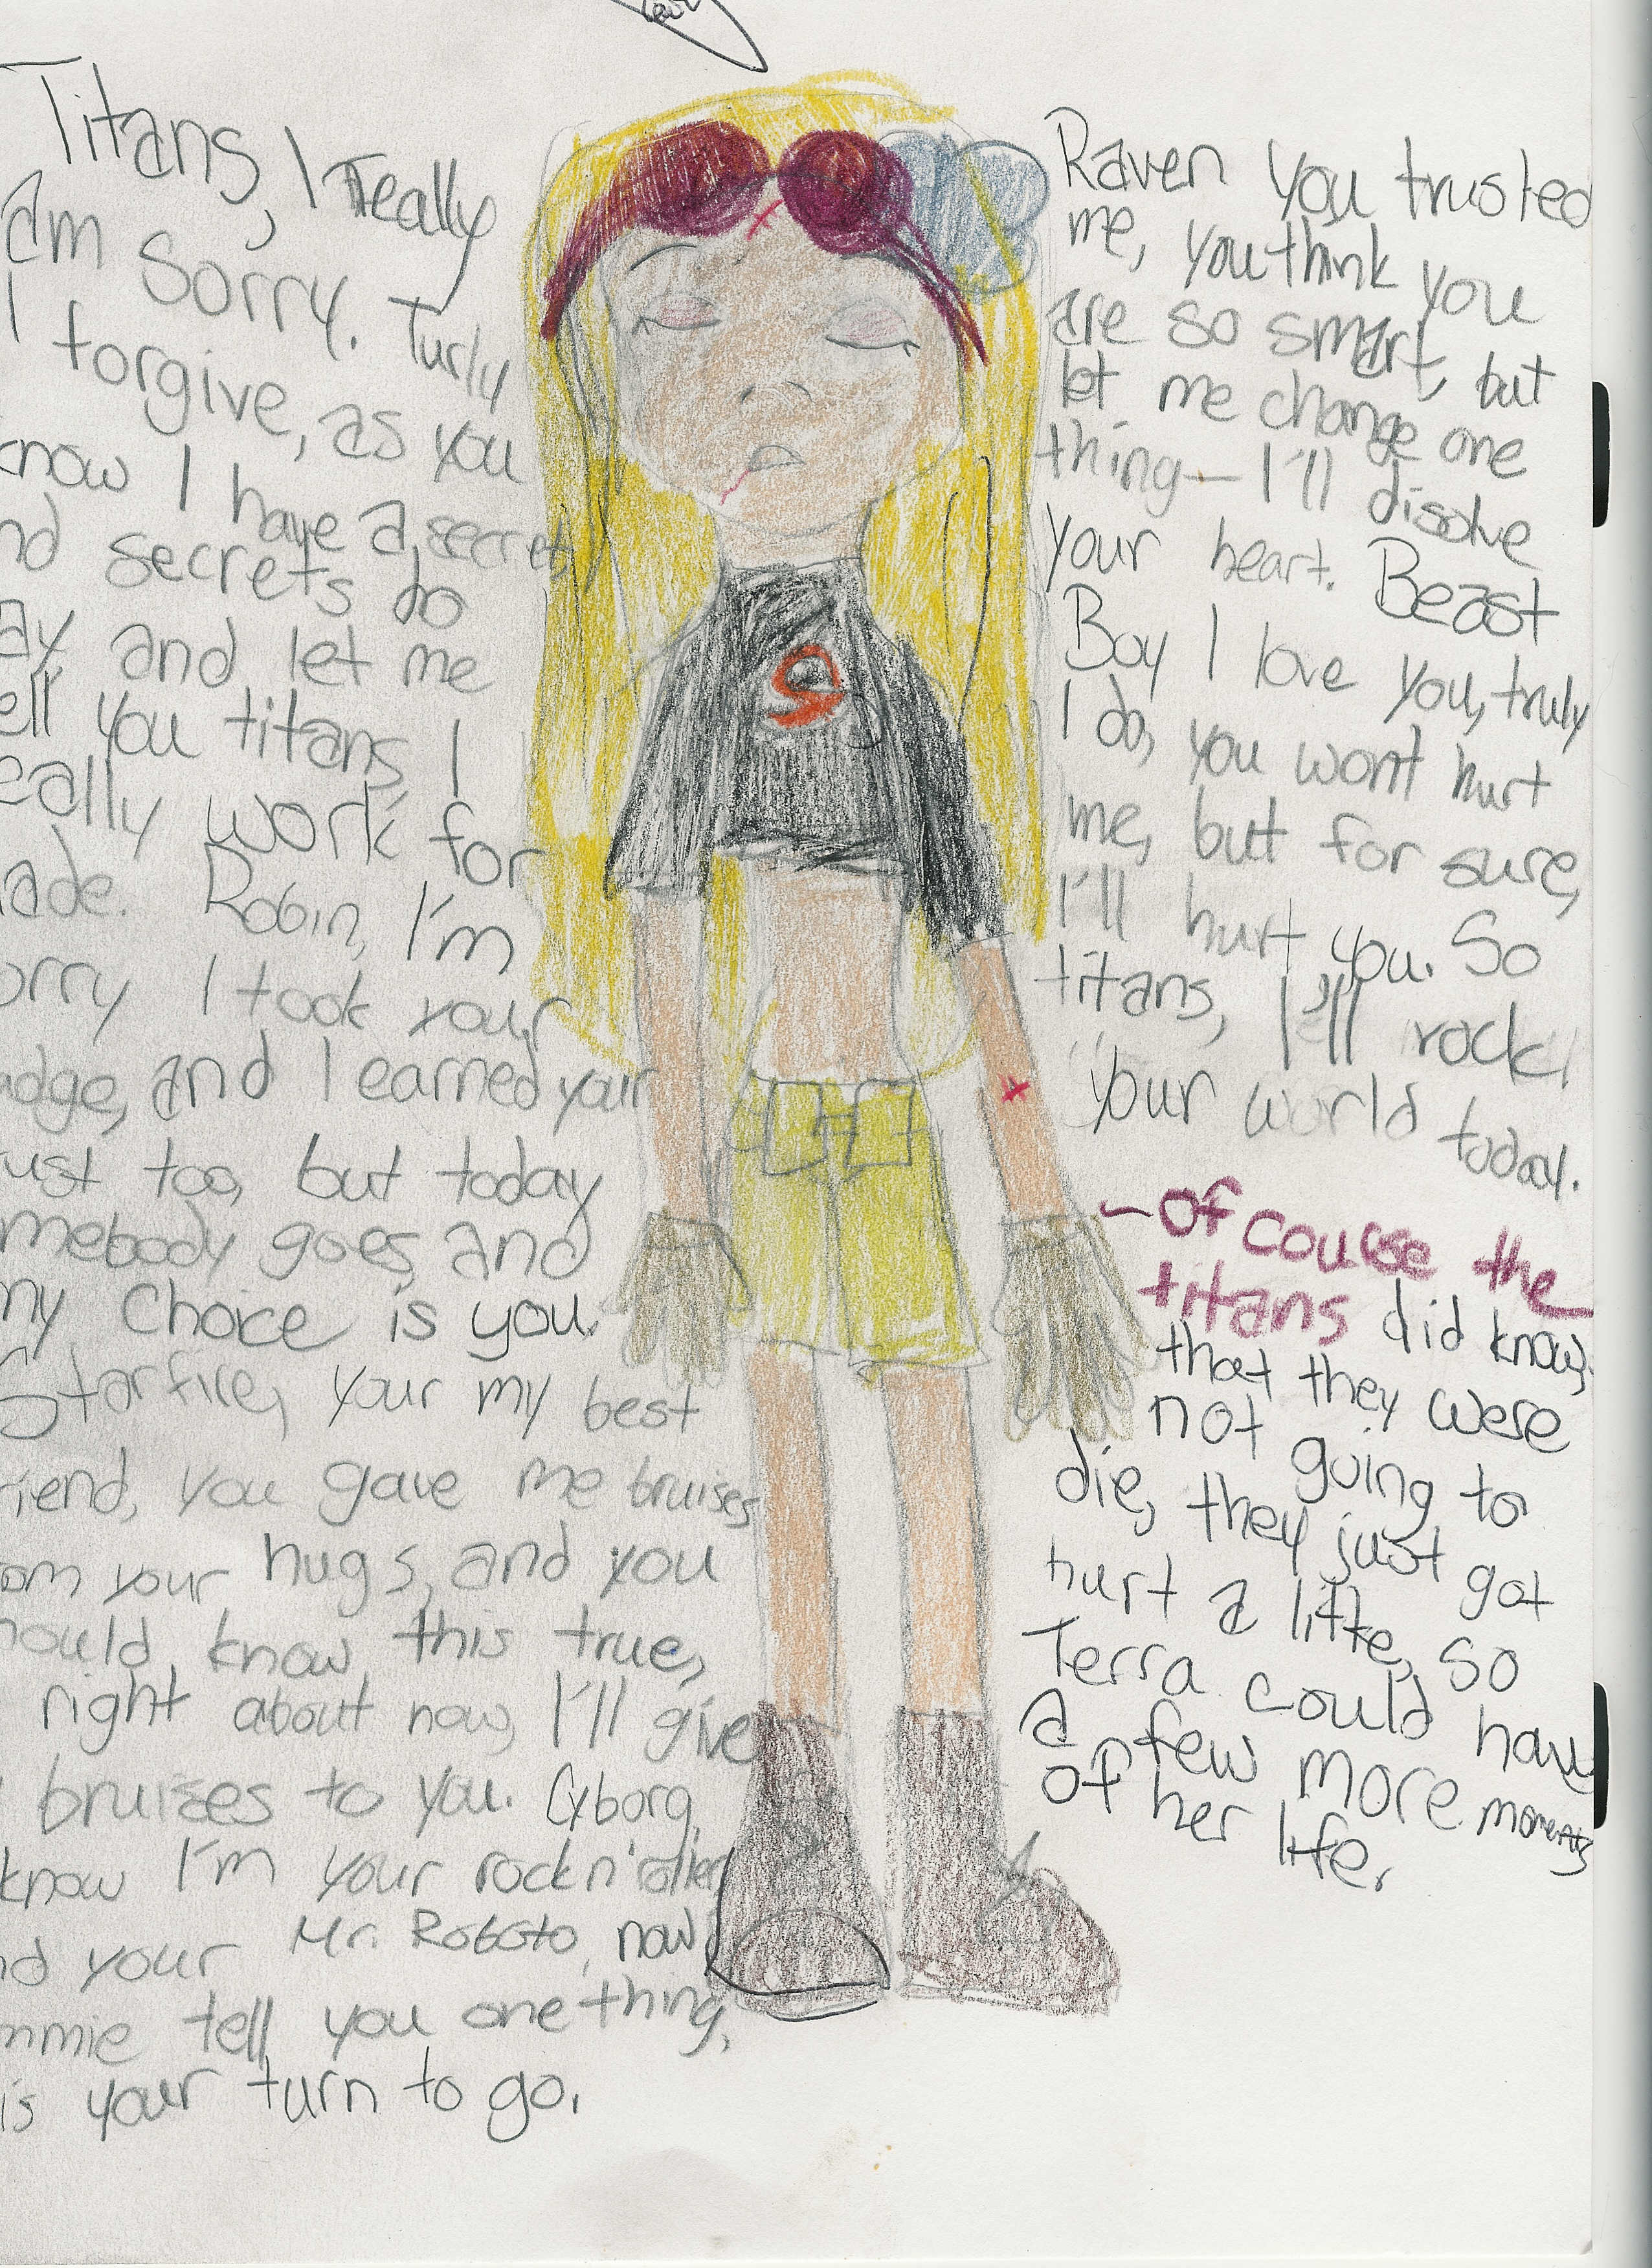 Titans, I really
am Sorry. Turly
I forgive, as you
know I have a secret,
nd secrets do
ay and let me
ell you titans, I
eally work for
lade. Robin, I'm
orry I took your
adge, and I earned your
rust too, but today
mebody goes, and
my choice is you.
Starfire, your my best
riend, you gave me bruises
om your hugs, and you
hould know this true,
right about now, I'll give
bruizes to you. Cyborg,
know I'm your rock n' roller
nd your Mr. Roboto, now
mmie tell you one thing,
is your turn to go.
Raven you trusted
me, you think you
are so smart, but
let me change one
thing—I'll disolve
your heart. Beast
Boy I love you, truly
I do, you wont hurt
me, but for sure,
I'll hurt you. So
titans, I'll rock
your world today.
-of course the
titans did know
that they were
not going to
die, they just got
hurt a little, so
Terra could have
a few more moments
of her life.